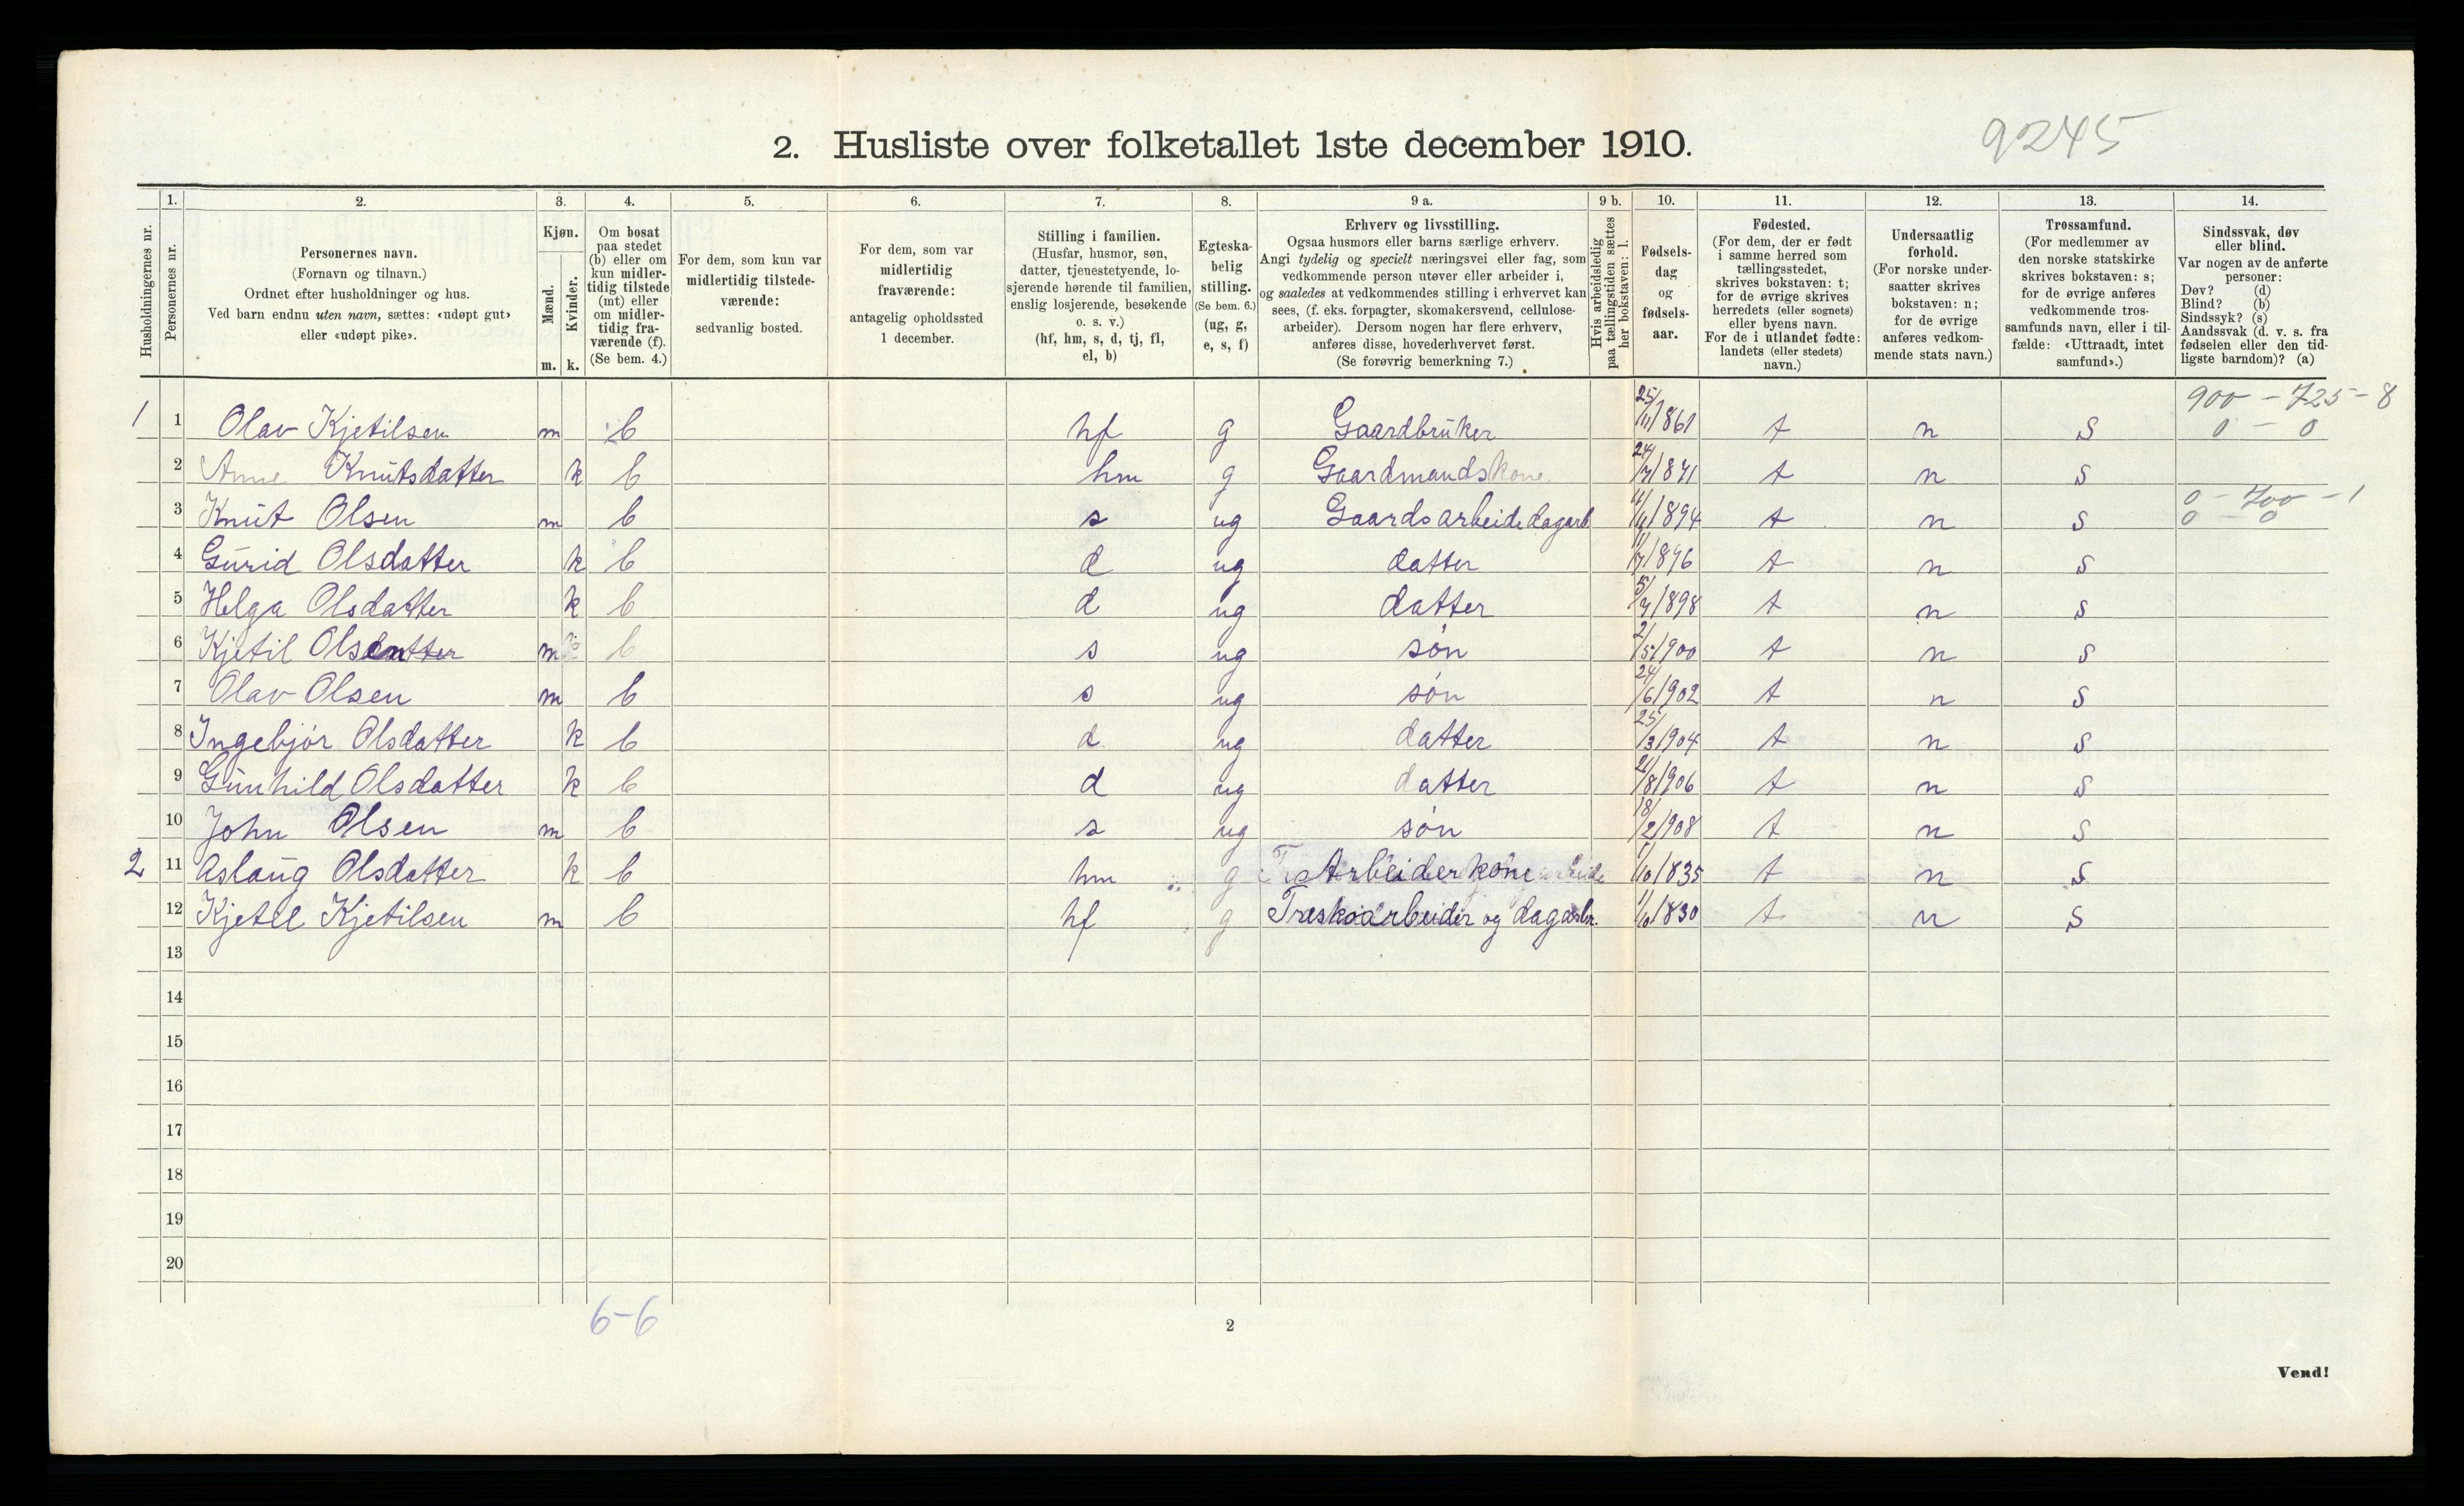 2. Husliste over folketallet 1ste december 1910.
9245
Husholdningernes nr.
1. 2. 3. 4. 5. 6. 7. 8. 9 a. 9 b. 10. 11. 12. 13. 14.
Personernes nr.
Personernes navn.
(Fornavn og tilnavn.)
Ordnet efter husholdninger og hus.
Ved barn endnu uten navn, sættes: «udøpt gut»
eller «udøpt pike».
Kjøn.
Mænd.
Kvinder.
m. k.
Om bosat
paa stedet
(b) eller om
kun midler-
tidig tilstede
(mt) eller
om midler-
tidig fra-
værende (f).
(Se bem. 4.)
For dem, som kun var
midlertidig tilstede-
værende:
sedvanlig bosted.
For dem, som var
midlertidig
fraværende:
antagelig opholdssted
1 december.
Stilling i familien.
(Husfar, husmor, søn,
datter, tjenestetyende, lo-
sjerende hørende til familien,
enslig losjerende, besøkende
o. s. v.)
(hf, hm, s, d, tj, fl,
el, b)
Egteska-
belig
stilling.
(Se bem. 6.)
(ug, g,
e, s, f)
Erhverv og livsstilling.
Ogsaa husmors eller barns særlige erhverv.
Angi tydelig og specielt næringsvei eller fag, som
vedkommende person utøver eller arbeider i,
og saaledes at vedkommendes stilling i erhvervet kan
sees, (f. eks. forpagter, skomakersvend, cellulose-
arbeider). Dersom nogen har flere erhverv,
anføres disse, hovederhvervet først.
(Se forøvrig bemerkning 7.)
Hvis arbeidsledig
paa tællingstiden sættes
her bokstaven: l.
Fødsels-
dag
og
fødsels-
aar.
Fødested.
(For dem, der er født
i samme herred som
tællingsstedet,
skrives bokstaven: t;
for de øvrige skrives
herredets (eller sognets)
eller byens navn.
For de i utlandet fødte:
landets (eller stedets)
navn.)
Undersaatlig
forhold.
(For norske under-
saatter skrives
bokstaven: n;
for de øvrige
anføres vedkom-
mende stats navn.)
Trossamfund.
(For medlemmer av
den norske statskirke
skrives bokstaven: s;
for de øvrige anføres
vedkommende tros-
samfunds navn, eller i til-
fælde: «Uttraadt, intet
samfund».)
Sindssvak, døv
eller blind.
Var nogen av de anførte
personer:
Døv? (d)
Blind? (b)
Sindssyk? (s)
Aandssvak (d. v. s. fra
fødselen eller den tid-
ligste barndom)? (a)
900 - 725 - 8
1 1 Olav Kjetilsen m b hf g Gaardbruker 25/11 1861 t n S 0 - 0
2 Anne Knutsdatter k b hm g Gaardmandskone 24/7 1871 t n S
0 - 700 - 1
3 Knut Olsen m b s ug Gaardsarbeide dagarb. 4/4 1894 t n S 0 - 0
4 Gurid Olsdatter k b d ug datter 11/7 1896 t n S
5 Helga Olsdatter k b d ug datter 5/7 1898 t n S
6 Kjetil Olsen m b s ug søn 2/5 1900 t n S
7 Olav Olsen m b s ug søn 24/6 1902 t n S
8 Ingebjør Olsdatter k b d ug datter 25/3 1904 t n S
9 Gunhild Olsdatter k b d ug datter 21/8 1906 t n S
10 John Olsen m b s ug søn 18/2 1908 t n S
2 11 Aslaug Olsdatter k b hm g Arbeiderkone 1/10 1835 t n S
12 Kjetil Kjetilsen m b hf g Træskoarbeider og dagarbr. 1/10 1830 t n S
13
14
15
16
17
18
19
20
6-6
2
Vend!